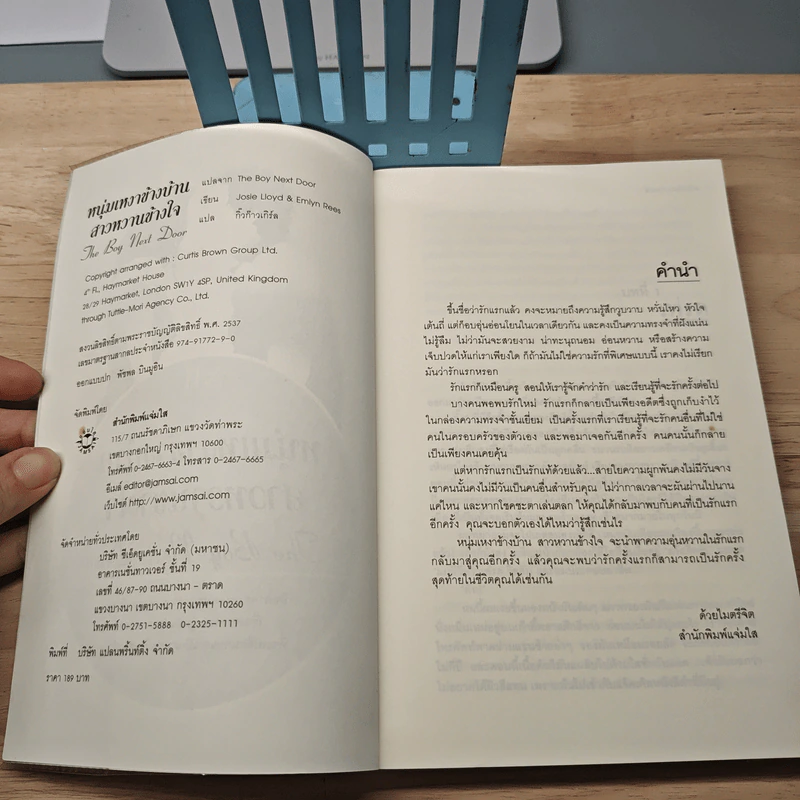 หนุ่มเหงาข้างบ้าน
สาวหวานข้างใจ
The Boy Next Door
แปลจาก The Boy Next Door
เขียน Josie Lloyd & Emlyn Rees
แปล กิ๊วก๊าวเกิร์ล
Copyright arranged with : Curtis Brown Group Ltd.
4th Fl., Haymarket House
28/29 Haymarket, London SW1Y 4SP, United Kingdom
through Tuttle-Mori Agency Co., Ltd.
สงวนลิขสิทธิ์ตามพระราชบัญญัติลิขสิทธิ์ พ.ศ. 2537
เลขมาตรฐานสากลประจำหนังสือ 974-91772-9-0
ออกแบบปก พัชพล บินมูอิน
จัดพิมพ์โดย สำนักพิมพ์แจ่มใส
115/7 ถนนรัชดาภิเษก แขวงวัดท่าพระ
เขตบางกอกใหญ่ กรุงเทพฯ 10600
โทรศัพท์ 0-2467-6663-4 โทรสาร 0-2467-6665
อีเมล์ editor@jamsai.com
เว็บไซต์ http://www.jamsai.com
จัดจำหน่ายทั่วประเทศโดย
บริษัท ซีเอ็ดยูเคชั่น จำกัด (มหาชน)
อาคารเนชั่นทาวเวอร์ ชั้นที่ 19
เลขที่ 46/87-90 ถนนบางนา - ตราด
แขวงบางนา เขตบางนา กรุงเทพฯ 10260
โทรศัพท์ 0-2751-5888 0-2325-1111
พิมพ์ที่ บริษัท แปลนพริ้นท์ติ้ง จำกัด
ราคา 189 บาท
คำนำ
ขึ้นชื่อว่ารักแรกแล้ว คงจะหมายถึงความรู้สึกวูบวาบ หวั่นไหว หัวใจ
เต้นถี่ แต่ก็อบอุ่นอ่อนโยนในเวลาเดียวกัน และคงเป็นความทรงจำที่ฝังแน่น
ไม่รู้ลืม ไม่ว่ามันจะสวยงาม น่าทะนุถนอม อ่อนหวาน หรือสร้างความ
เจ็บปวดให้แก่เราเพียงใด ก็ถ้ามันไม่ใช่ความรักที่พิเศษแบบนี้ เราคงไม่เรียก
มันว่ารักแรกหรอก
รักแรกก็เหมือนครู สอนให้เรารู้จักคำว่ารัก และเรียนรู้ที่จะรักครั้งต่อไป
บางคนพอพบรักใหม่ รักแรกก็กลายเป็นเพียงอดีตซึ่งถูกเก็บงำไว้
ในกล่องความทรงจำชั้นเยี่ยม เป็นครั้งแรกที่เราเรียนรู้ที่จะรักคนอื่นที่ไม่ใช่
คนในครอบครัวของตัวเอง และพอมาเจอกันอีกครั้ง คนคนนั้นก็กลาย
เป็นเพียงคนเคยคุ้น
แต่หากรักแรกเป็นรักแท้ด้วยแล้ว...สายใยความผูกพันคงไม่มีวันจาง
เขาคนนั้นคงไม่มีวันเป็นคนอื่นสำหรับคุณ ไม่ว่ากาลเวลาจะผันผ่านไปนาน
แค่ไหน และหากโชคชะตาเล่นตลก ให้คุณได้กลับมาพบกับคนที่เป็นรักแรก
อีกครั้ง คุณจะบอกตัวเองได้ไหมว่ารู้สึกเช่นไร
หนุ่มเหงาข้างบ้าน สาวหวานข้างใจ จะนำพาความอุ่นหวานในรักแรก
กลับมาสู่คุณอีกครั้ง แล้วคุณจะพบว่ารักครั้งแรกก็สามารถเป็นรักครั้ง
สุดท้ายในชีวิตคุณได้เช่นกัน
ด้วยไมตรีจิต
สำนักพิมพ์แจ่มใส